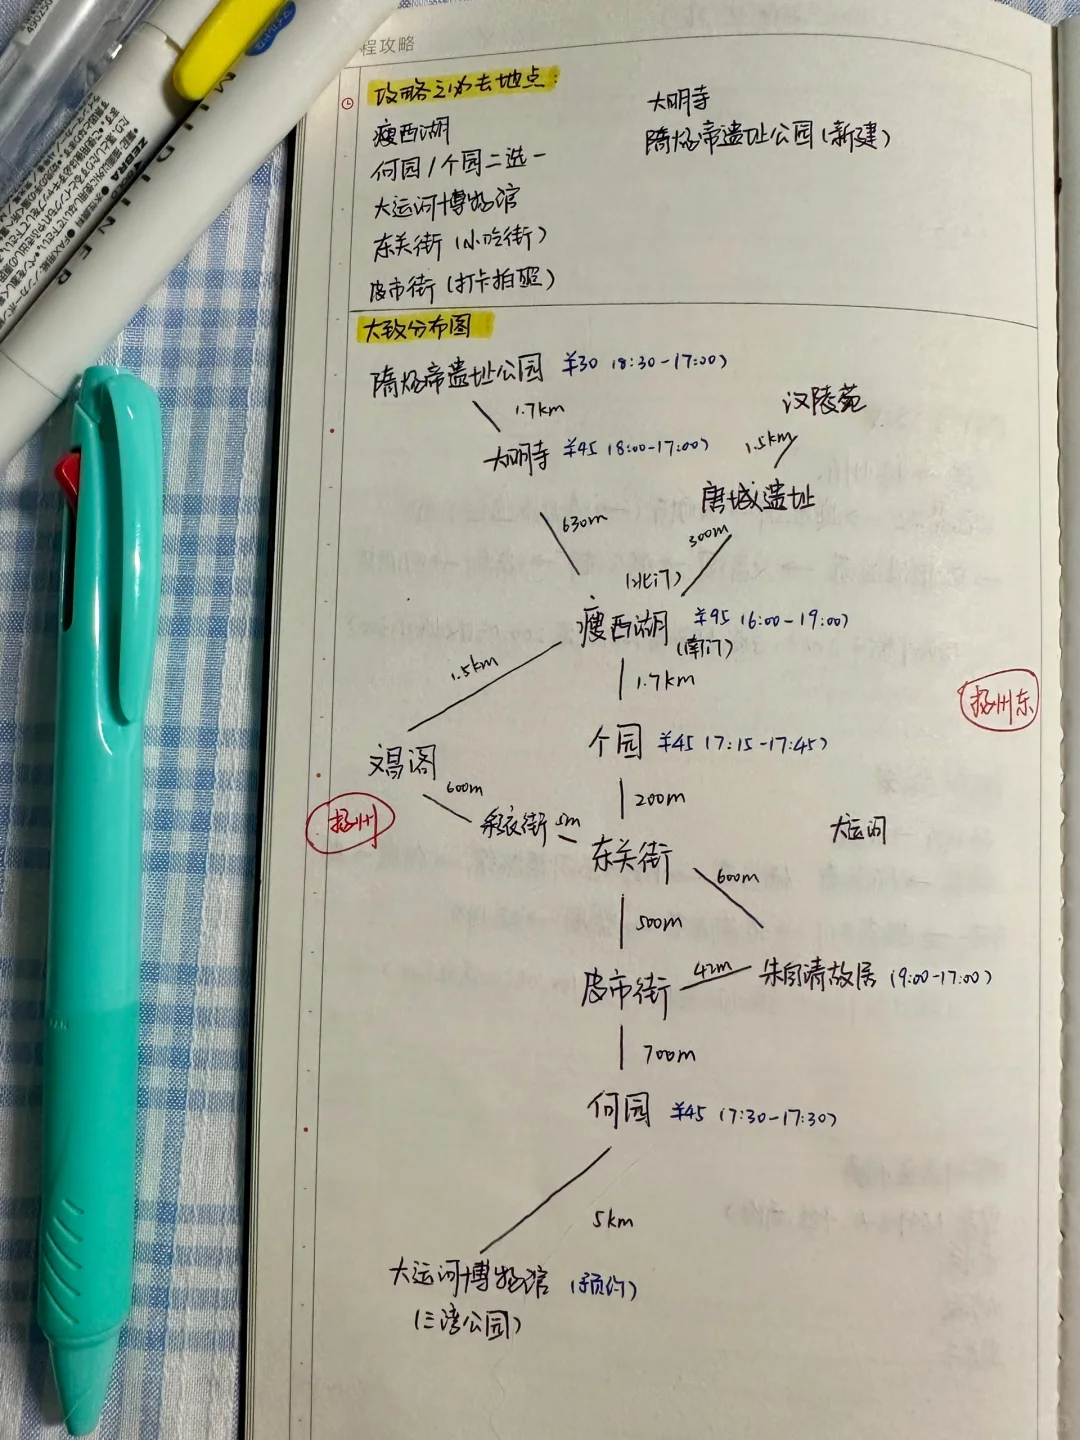 程攻略
攻略之必去地点:
瘦西湖
何园/个园二选一
大运河博物馆
东关街(小吃街)
皮市街(打卡拍照)
大明寺
隋炀帝遗址公园(新建)
大致分布图
隋炀帝遗址公园 ¥30 (8:30-17:00)
1.7km
汉陵苑
大明寺 ¥45 (8:00-17:00)
1.5km
唐城遗址
630m
300m
(北门)
瘦西湖 ¥95 (6:00-19:00)
(南门)
1.5km
1.7km
扬州东
个园 ¥45 (7:15-17:45)
文昌阁
600m
200m
扬州
彩衣街 5m
东关街
大运河
600m
500m
皮市街 42m 朱自清故居 (9:00-17:00)
700m
何园 ¥45 (7:30-17:30)
5km
大运河博物馆 (预约)
(三湾公园)
MILDLINER
ZEBRA